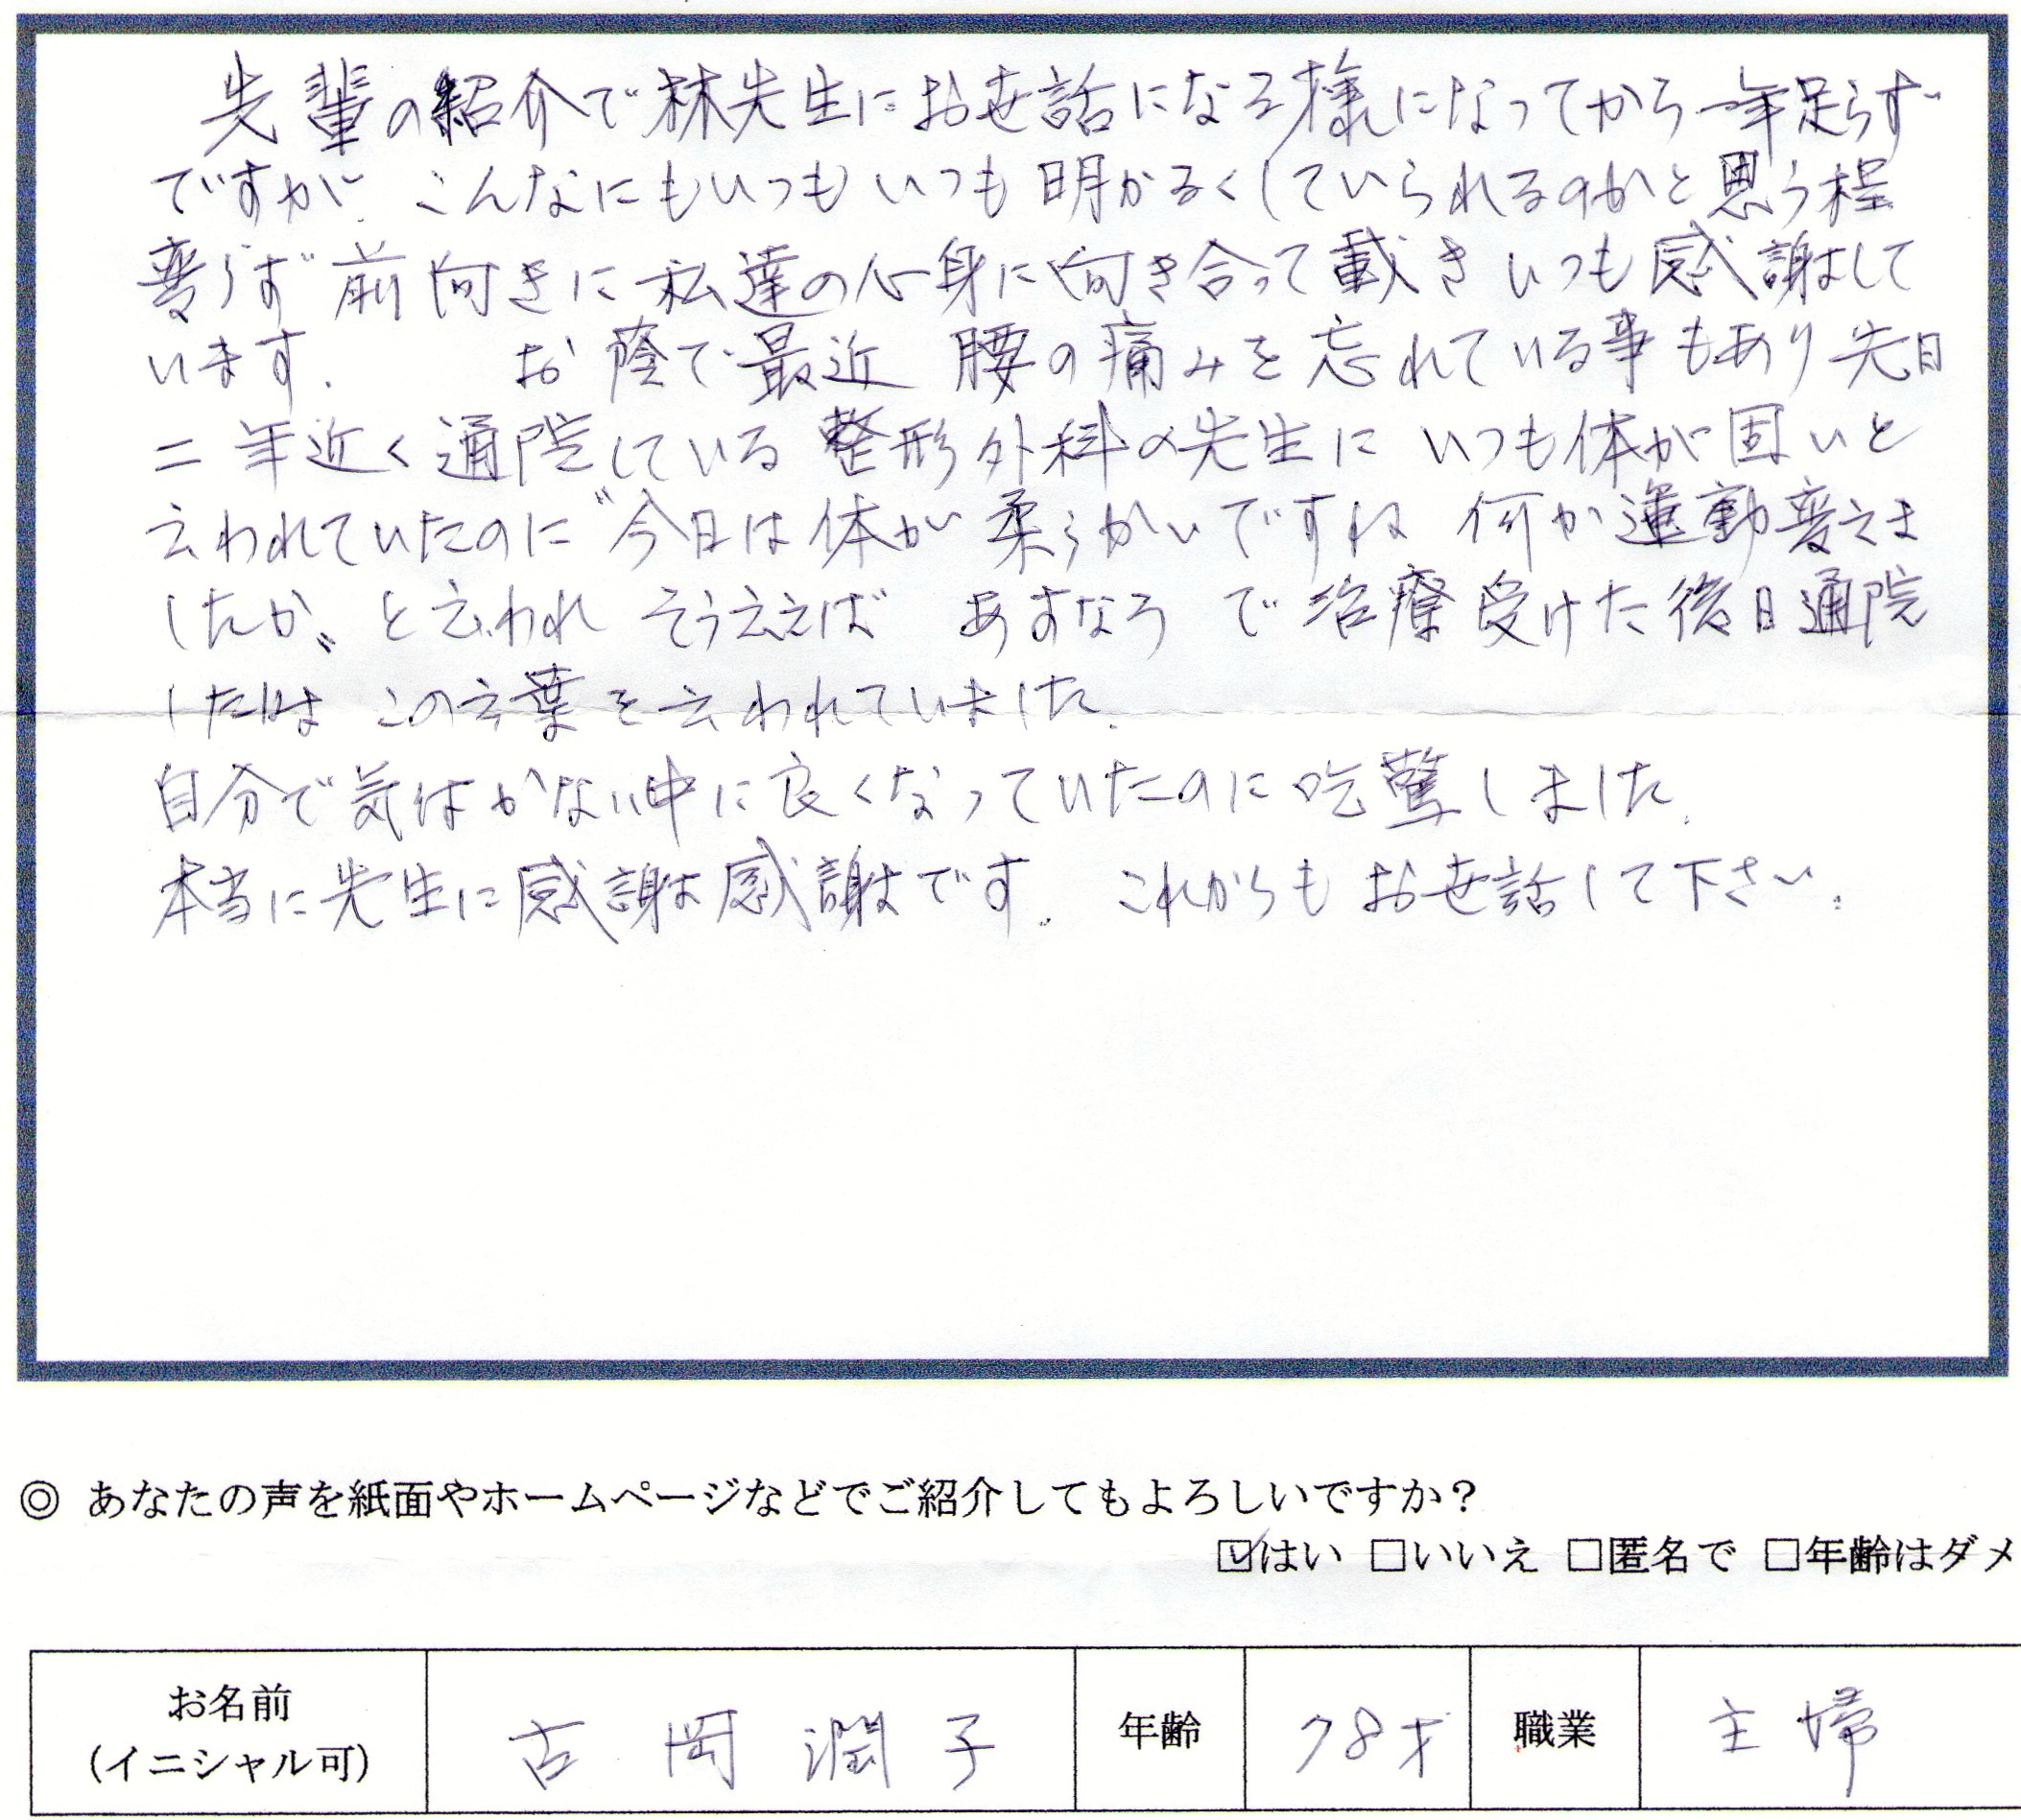 先輩の紹介で林先生にお世話になる様になってから一年足らず
ですが、こんなにもいつもいつも明かるくしていられるのかと思う程
変らず前向きに私達の心身に向き合って戴きいつも感謝して
います. お蔭で最近 腰の痛みを忘れている事もあり先日
二年近く通院している整形外科の先生に いつも体が固いと
云われていたのに〝今日は体が柔らかいですね 何か運動変えま
したか〟と云われ そう云えば あすなろ で治療受けた後日通院
した日は この言葉を云われていました.
自分で気付かない中に良くなっていたのに吃驚しました.
本当に先生に感謝感謝です. これからもお世話して下さい.
◎ あなたの声を紙面やホームページなどでご紹介してもよろしいですか？
☑はい □いいえ □匿名で □年齢はダメ
お名前 古岡潤子 年齢 78才 職業 主婦
(イニシャル可)